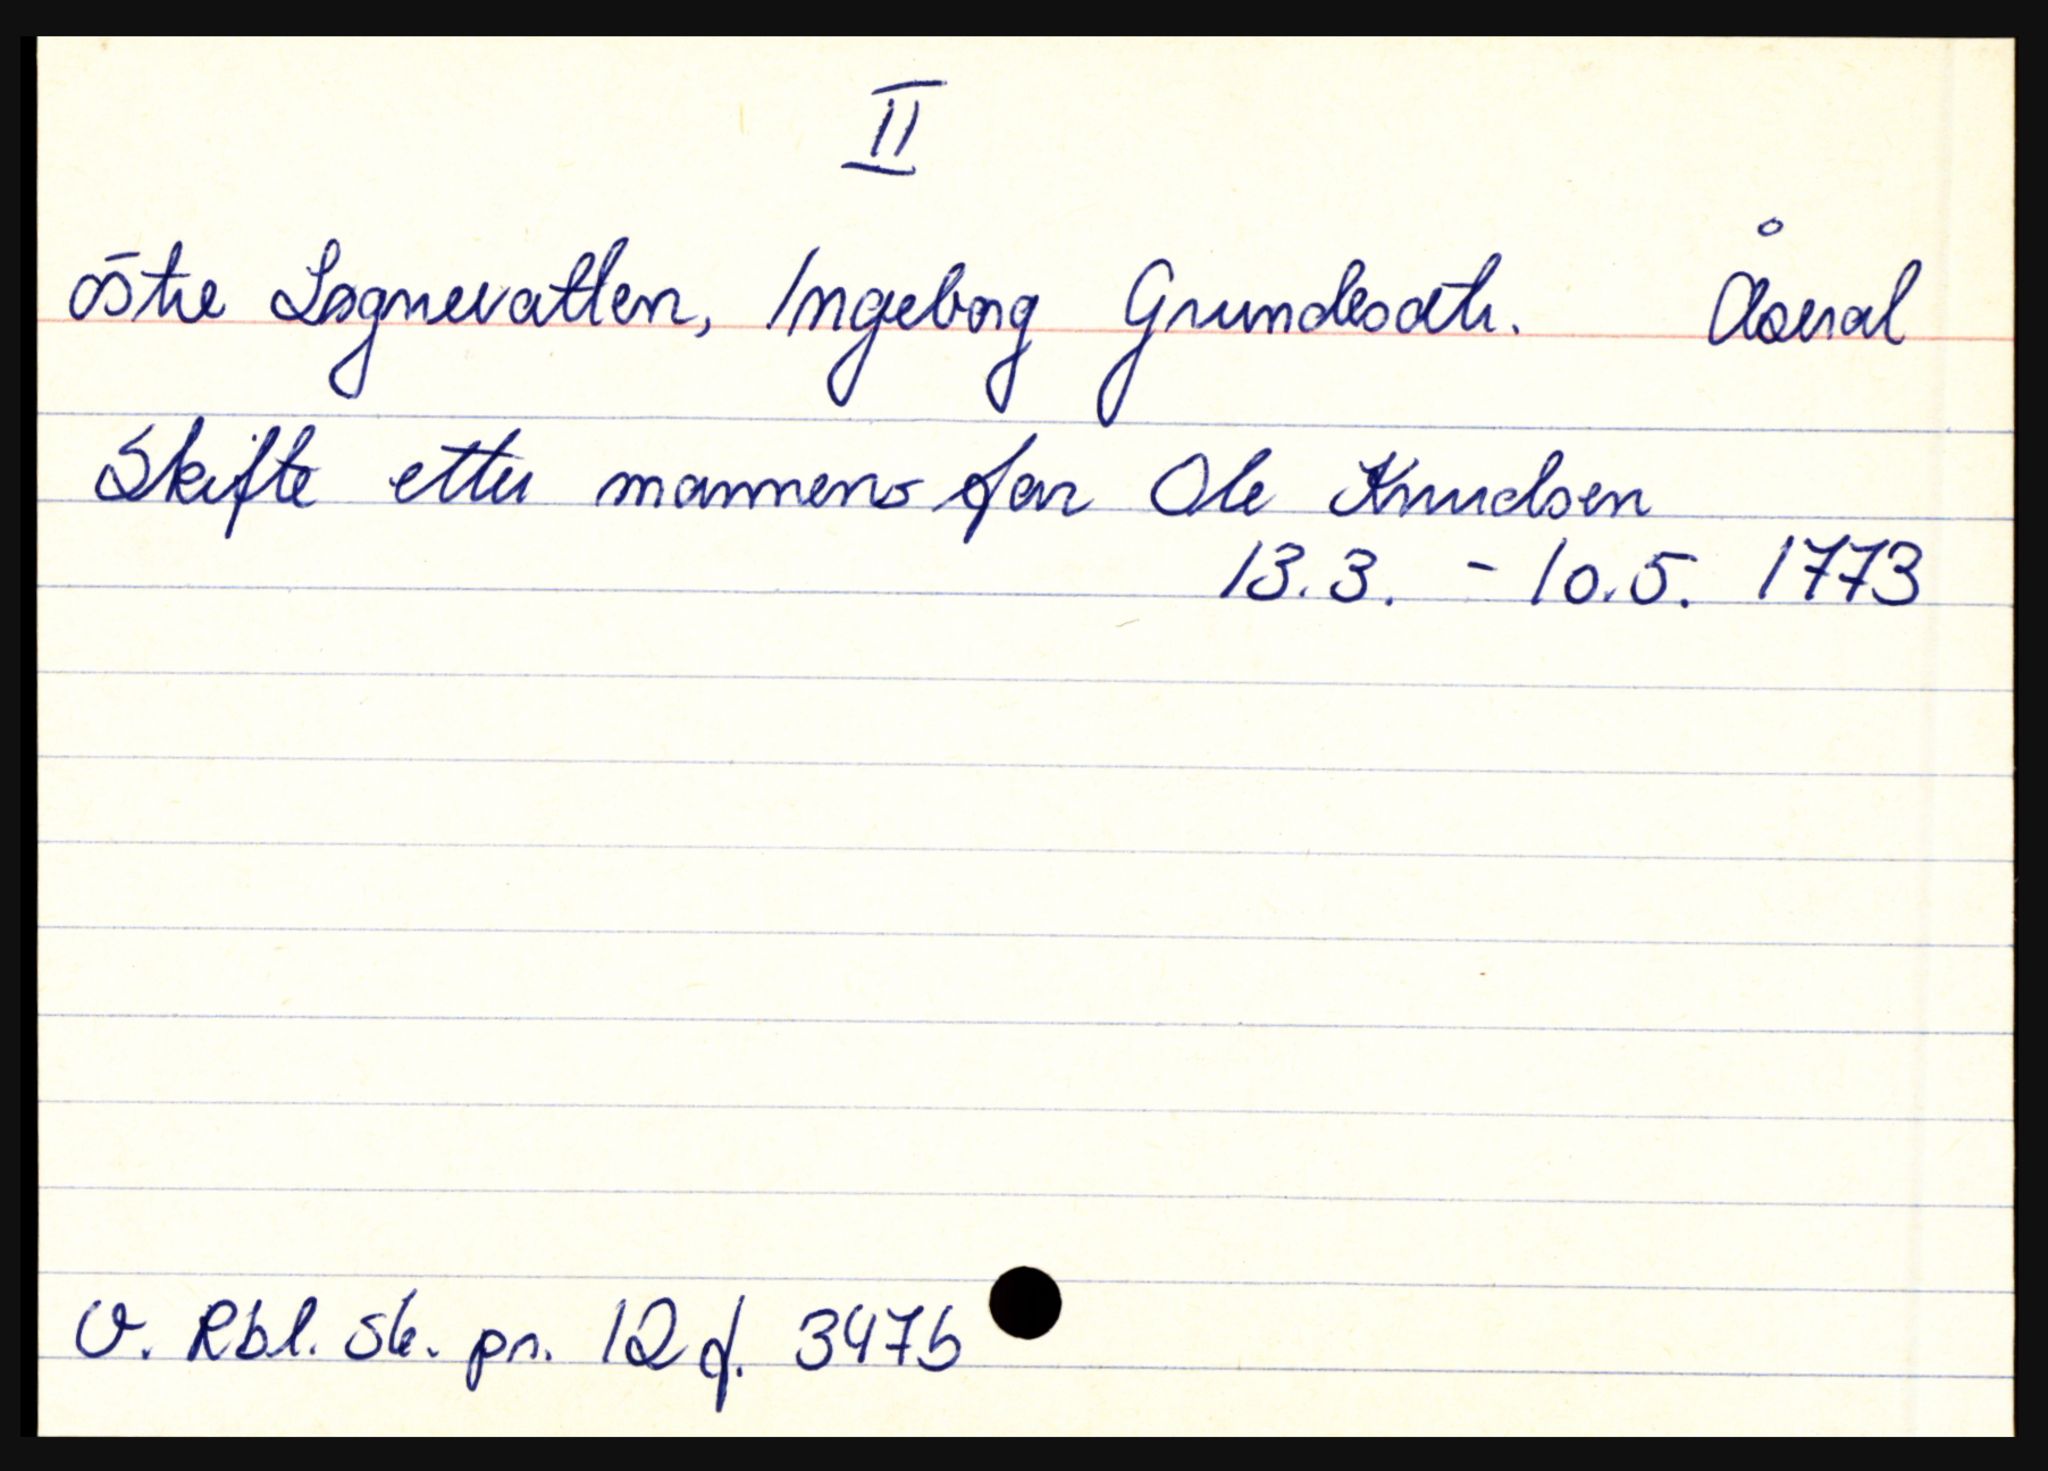 II
østre Lognevatten, Ingeborg Grundesdtr. Åseral
Skifte etter mannens far Ole Knudsen
13.3. - 10.5. 1773
V. Rbl. sk. pr. 12 f. 347b